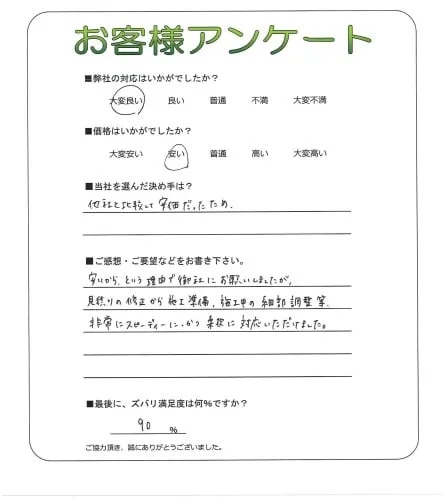 お客様アンケート
■弊社の対応はいかがでしたか?
大変良い 良い 普通 不満 大変不満
■価格はいかがでしたか?
大変安い 安い 普通 高い 大変高い
■当社を選んだ決め手は?
他社と比較して安価だったため。
■ご感想・ご要望などをお書き下さい。
安いから、という理由で御社にお願いしましたが、
見積りの修正から施工準備、施工中の細部調整等、
非常にスピーディーに、かつ柔軟に対応いただけました。
■最後に、ズバリ満足度は何%ですか?
90 %
ご協力頂き、誠にありがとうございました。